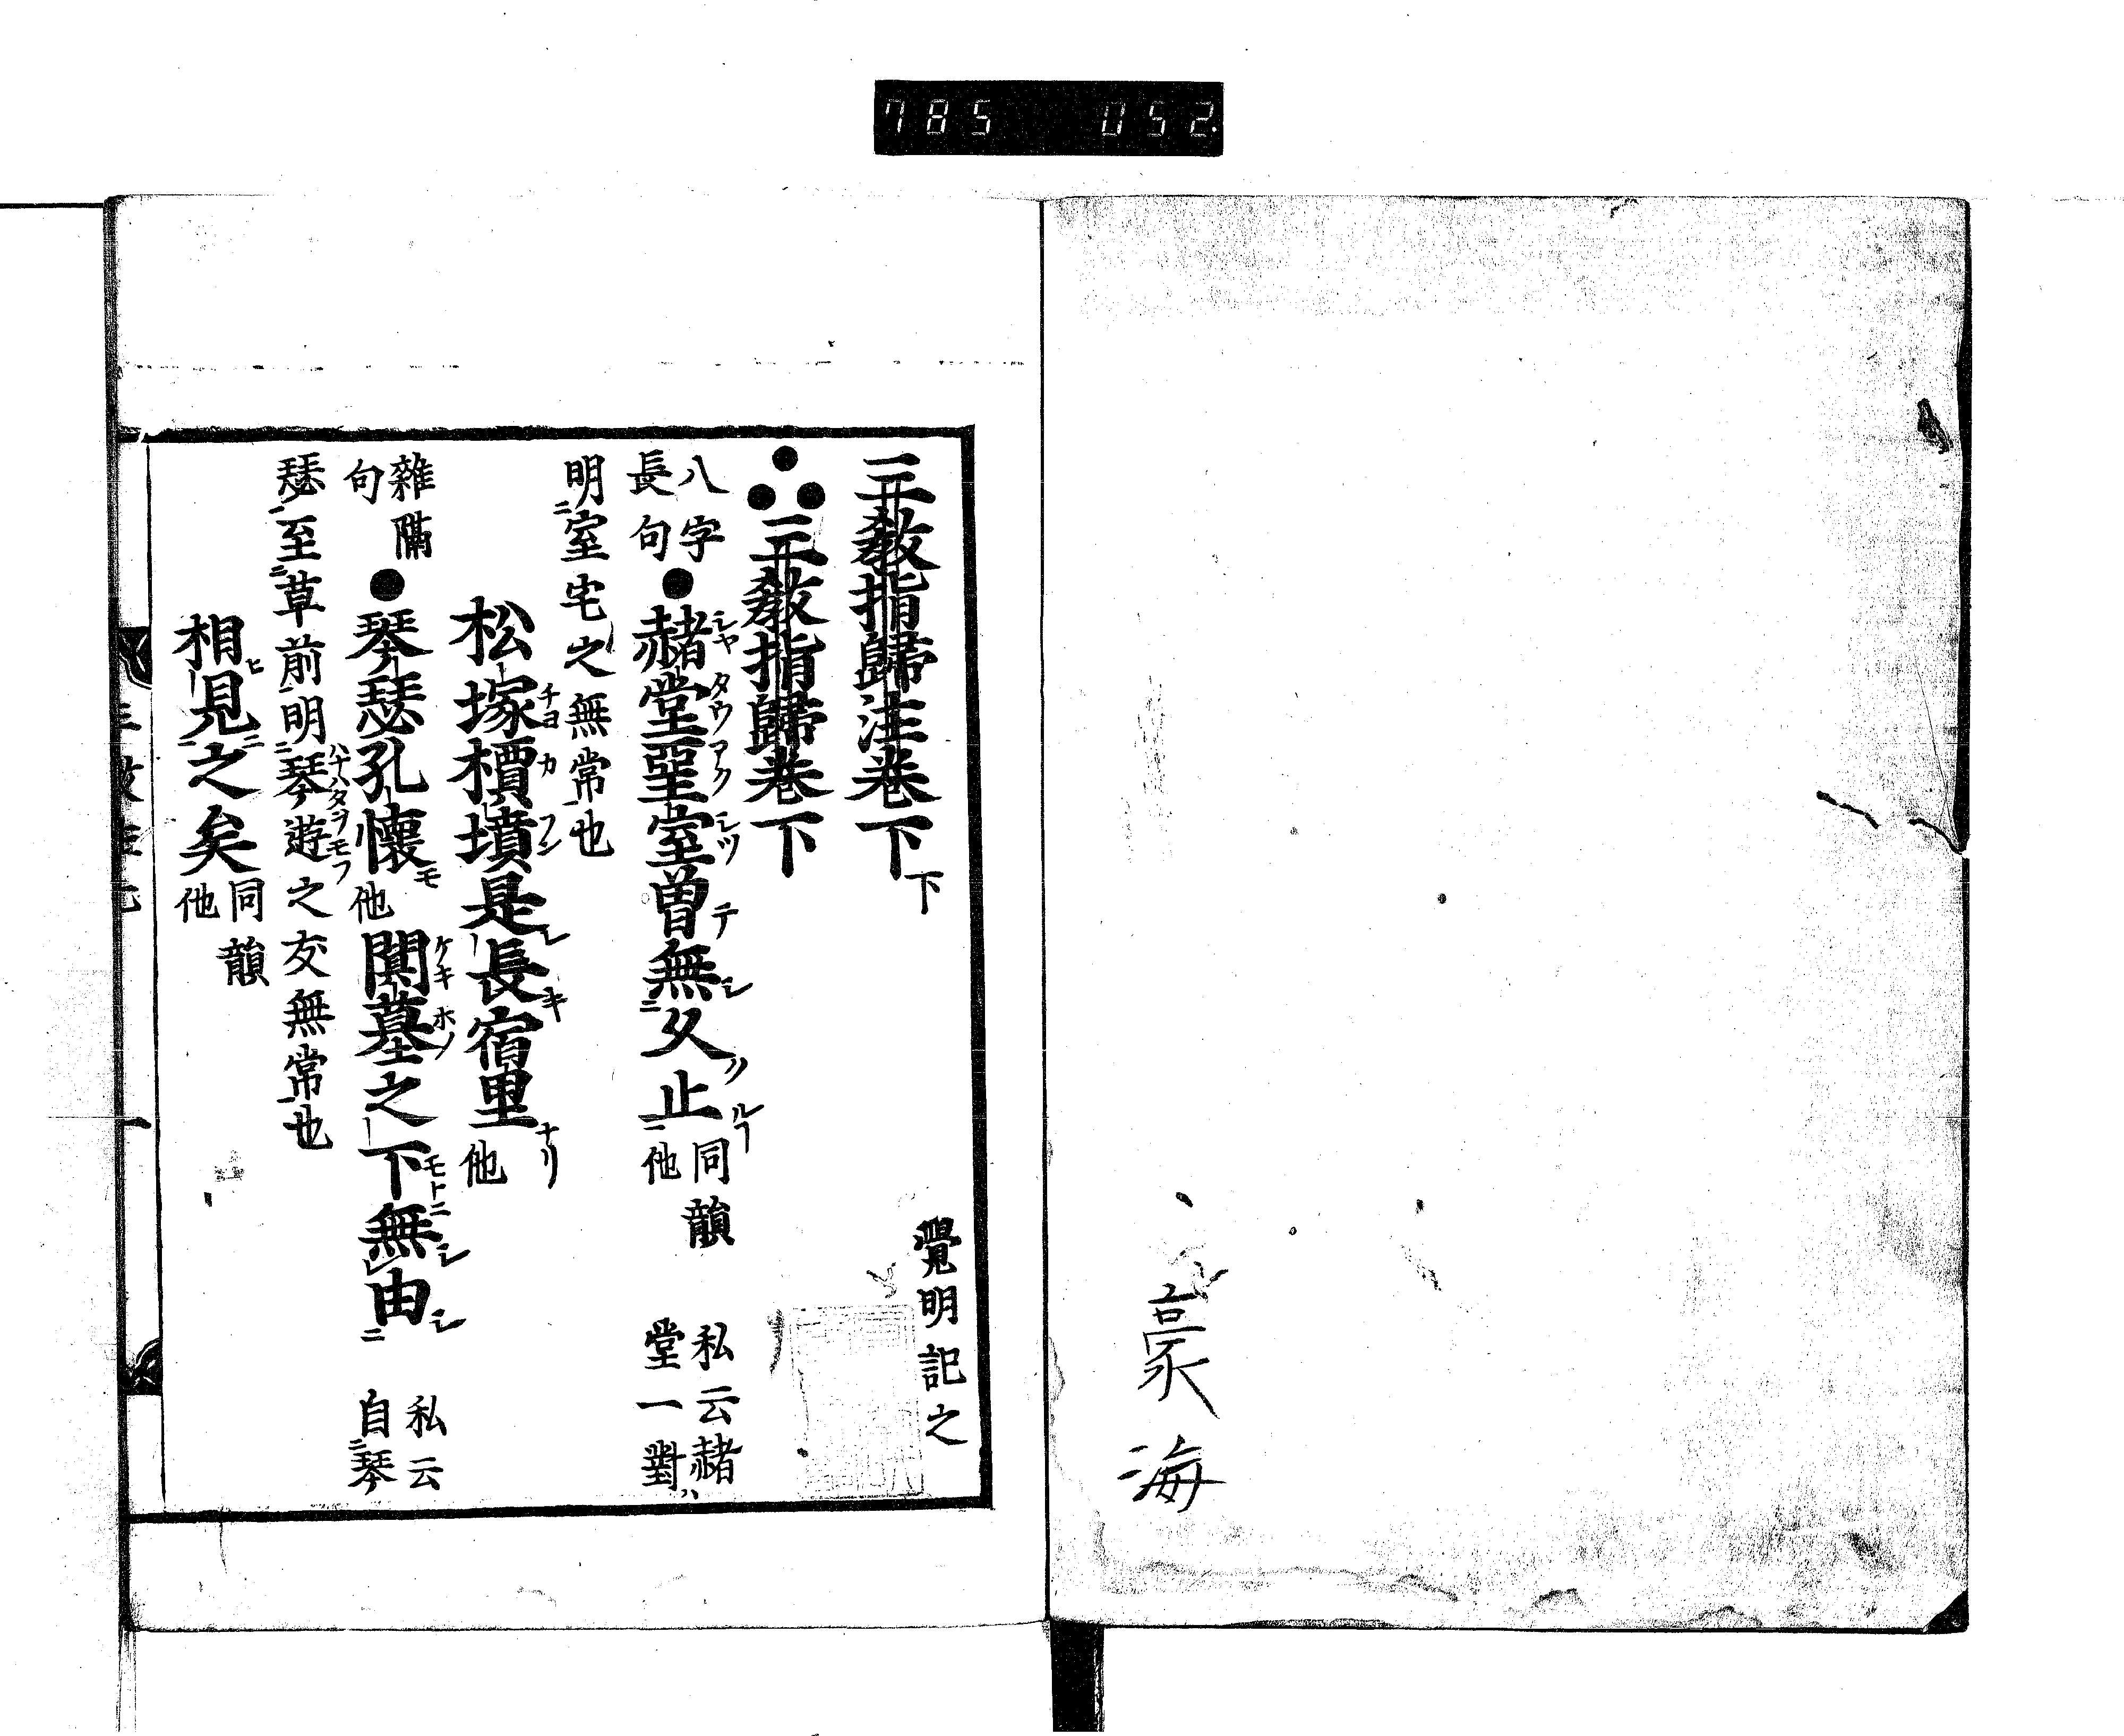 785 052
豪海
三教指歸注卷下 下
覺明記之
三教指歸卷下
八字長句●赭堂堊室曽無久止 同韻他 私云赭堂一對ハ
明室宅之無常也
松塚檟墳是長宿里 他
雜隔句●琴瑟孔懷 他 闃墓之下無由 私云自琴
瑟至草前明琴遊之友無常也
相見之矣 同韻他